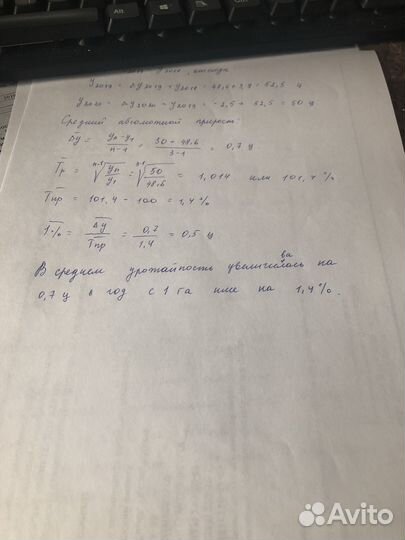 y2018, отсюда
y2019 = Δy2019 + y2018 = 48,6 + 3,9 = 52,5 ц
y2020 = Δy2020 + y2019 = -2,5 + 52,5 = 50 ц
Средний абсолютной прирост:
Δy = (yn - y1)/(n-1) = (50 - 48.6)/(3-1) = 0,7 ц
Tр = n-1√(yn/y1) = 3-1√(50/48.6) = 1,014 или 101,4 %
Tпр = 101,4 - 100 = 1,4 %
1% = Δy/Tпр = 0,7/1,4 = 0,5 ц
В среднем урожайность увеличилась на
0,7 ц в год с 1 га или на 1,4 %.
Avito